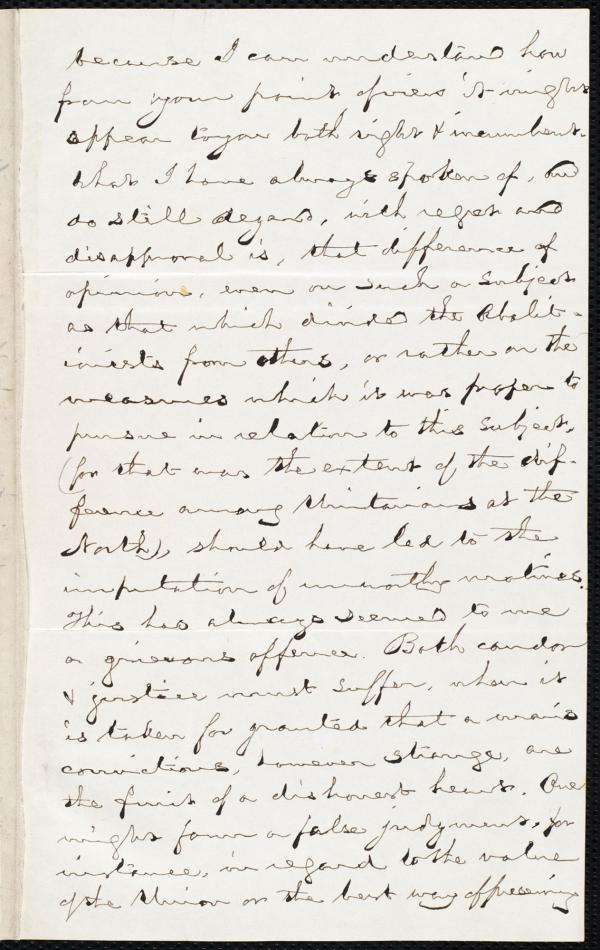 because I can understand how
from your point of view it might
appear to you both right & incumbent.
What I have always spoken of, and
do still regard, with regret and
disapproval is, that difference of
opinion, even on such a subject
as that which divided the Abolit-
ionists from others, or rather on the
measures which it was proper to
pursue in relation to this subject,
(for that was the extent of the dif-
ference among Unitarians at the
North), should have led to the
imputation of unworthy motives.
This has always seemed to me
a grievous offence. Both candor
& justice must suffer, when it
is taken for granted that a man's
convictions, however strange, are
the fruit of a dishonest heart. One
might form a false judgment, for
instance, in regard to the value
of the Union or the best way of freeing